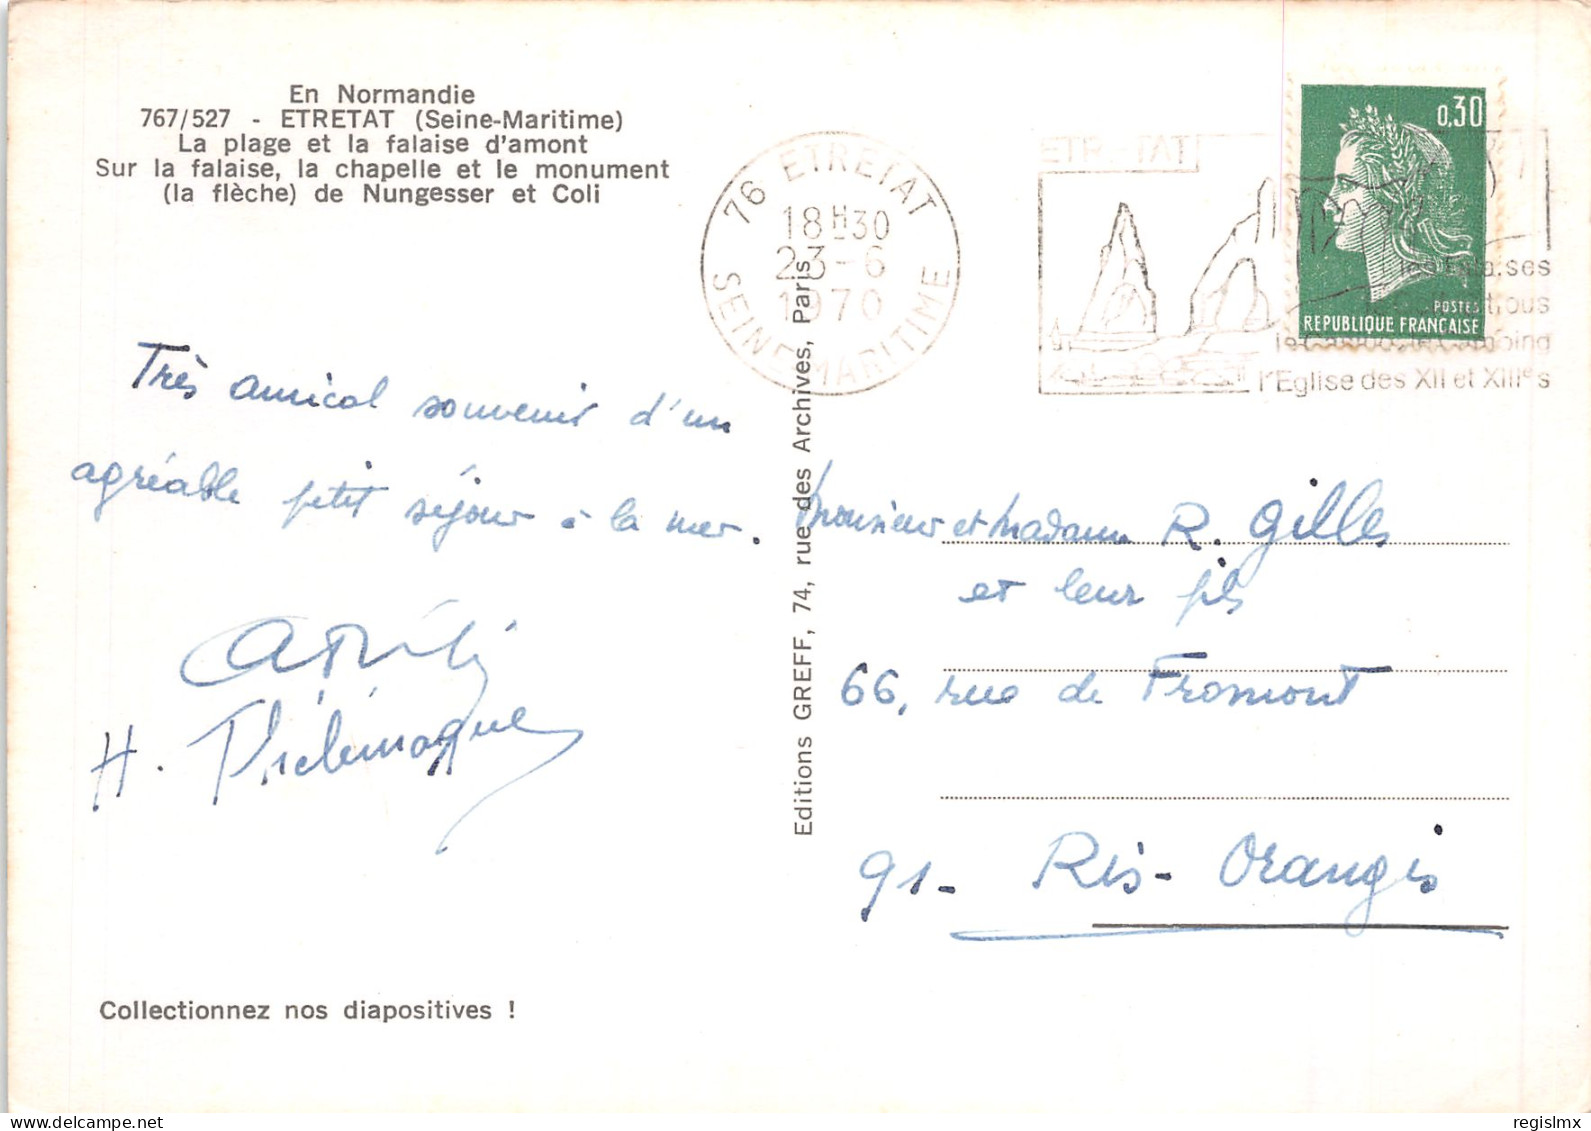 En Normandie
767/527 - ETRETAT (Seine-Maritime)
La plage et la falaise d'amont
Sur la falaise, la chapelle et le monument
(la flèche) de Nungesser et Coli
76 ETRETAT
18H30
23-6
1970
SEINE-MARITIME
ETRETAT
l'Eglise des XII et XIIIes
0,30
POSTES
REPUBLIQUE FRANÇAISE
Très amical souvenir d'un
agréable petit séjour à la mer.
H.
Editions GREFF, 74, rue des Archives, Paris
Monsieur et Madame R. Gilles
et leur fils
66, rue de Fromont
91- Ris-Orangis
Collectionnez nos diapositives !
regislmx